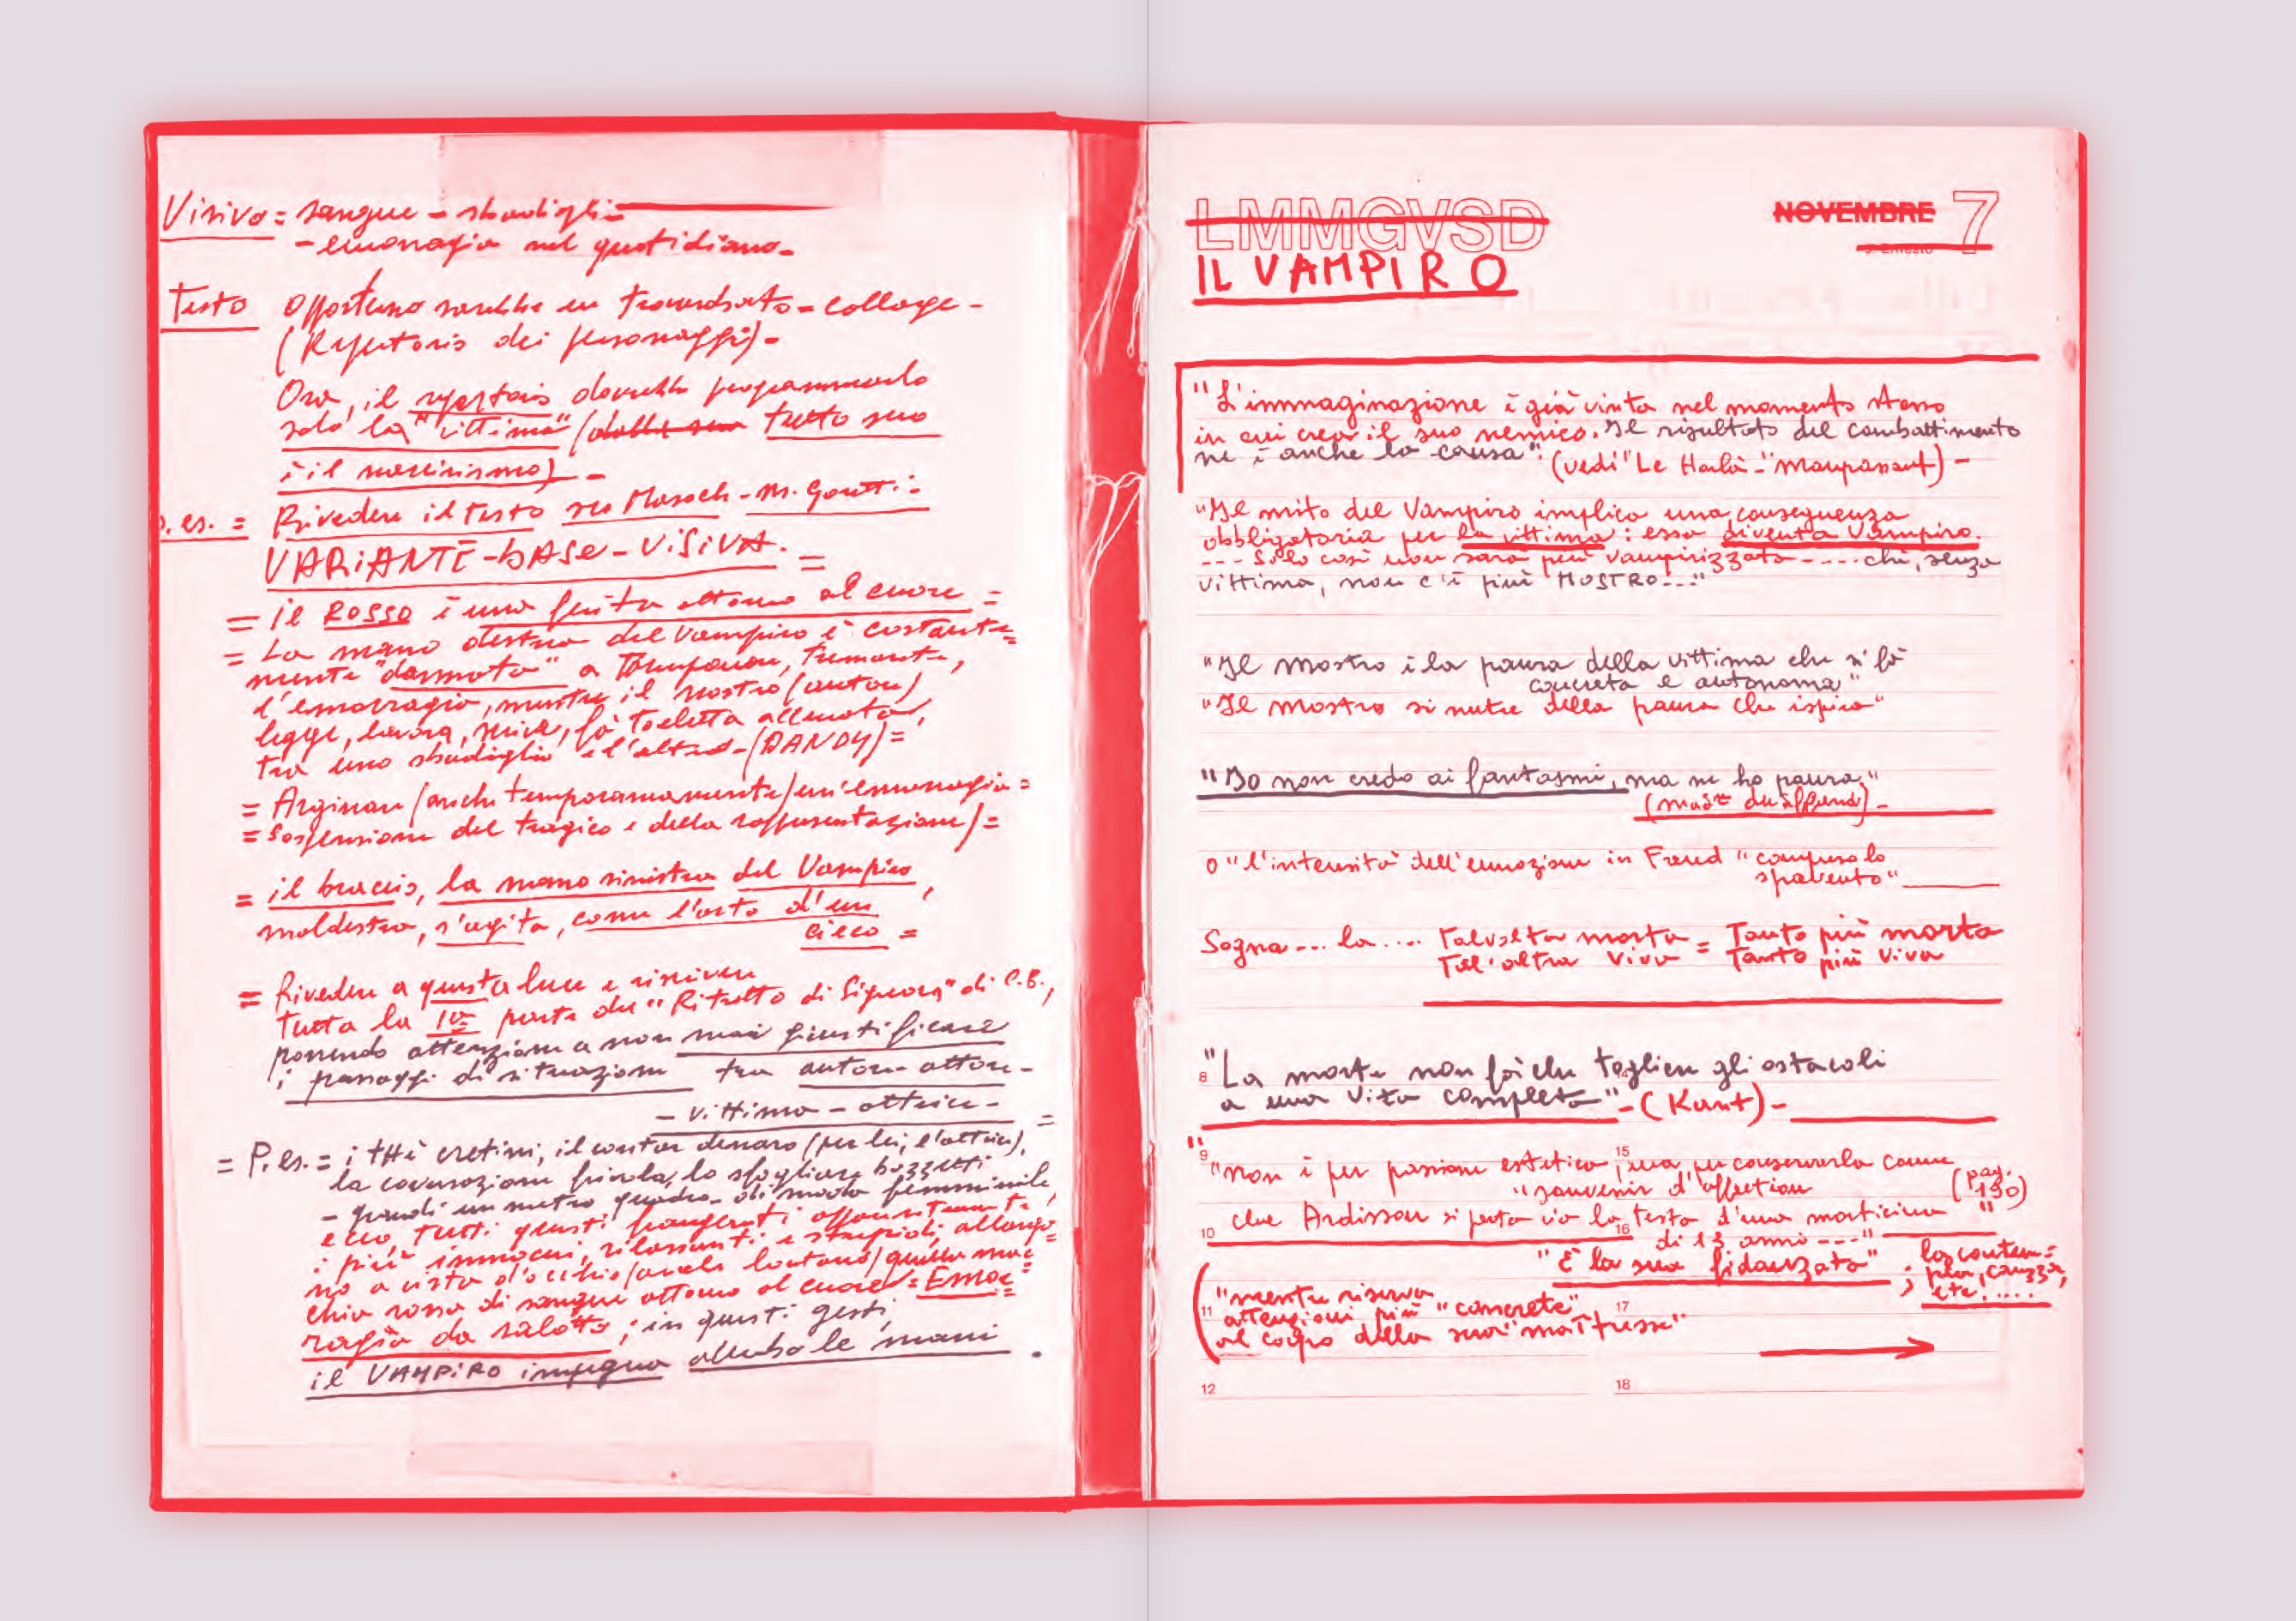 Visivo = sangue - sbadigli
- emorragia nel quotidiano -
Testo Opportuno sarebbe un trovarobato = collage -
(Repertorio dei personaggi) -
Ora, il repertorio dovrebbe programmarlo
solo la "vittima" (dalle sue tutto suo
è il narcisismo) -
p. es. = Rivedere il testo su Masoch - M. 
VARIANTE - BASE - VISIVA. =
= il ROSSO è una ferita attorno al cuore =
= La mano destra del Vampiro è costante=
mente "dannata" a tamponare, tremante,
l'emorragia, mentre il nostro (autore)
legge, lavora, scrive, fà toeletta allenata,
tra uno sbadiglio e l'altro - (DANDY) =
= Arginare (anche temporaneamente) un'emorragia =
= Sospensione del tragico e della rappresentazione) =
= il braccio, la mano sinistra del Vampiro,
maldestra, s'agita, come l'arto d'un
cieco =
= Rivedere a questa luce e riscrivere
tutta la IVª parte del "Ritratto di Signora" di C.B.,
ponendo attenzione a non mai giustificare
i passaggi di situazione tra autore - attore -
- vittima - attrice - =
= P. es. = i thè cretini, il contar denaro (per lei, l'attrice),
la conversazione frivola, lo sfogliare bozzetti
- grandi un metro quadro - di moda femminile
ecco, tutti questi frangenti apparentemente,
i più innocui, rilassanti e stupidi, allarga=
no a vista d'occhio (anche lontano) quella mac=
chia rossa di sangue attorno al cuore = Emor=
ragia da salotto; in questi gesti,
il VAMPIRO impegna ambo le mani.
LMMGVSD
NOVEMBRE 7
S. Ernesto
IL VAMPIRO
"L'immaginazione è già vinta nel momento stesso
in cui crea il suo nemico. Il risultato del combattimento
ne è anche la causa". (vedi "Le Horlà - "Maupassant) -
"Il mito del Vampiro implica una conseguenza
obbligatoria per la vittima: essa diventa Vampiro.
--- Solo così non sarà più vampirizzata ---- chè, senza
vittima, non c'è più MOSTRO..."
"Il mostro è la paura della vittima che si fà
concreta e autonoma"
"Il mostro si nutre della paura che ispira"
"Io non credo ai fantasmi, ma ne ho paura"
(mad.me du deffand) -
o "l'intensità dell'emozione in Freud "compreso lo
spavento"
Sogna ... la .... Talvolta morta = Tanto più morta
Tal'altra viva = Tanto più viva
8 "La morte non fà che togliere gli ostacoli
a una vita completa" - (Kant) -
9 15
"non è per passione estetica, ma per conservarla come
"souvenir d'affection (pag. 190)
10 16
che Ardisson si porta via la testa d'una morticina
di 13 anni ---"
"È la sua fidanzata" ; la contem=
; pla, carezza,
etc. ....
11 17
("mentre riserva
attenzioni più "concrete"
al corpo della sua "maîtresse"
12 18